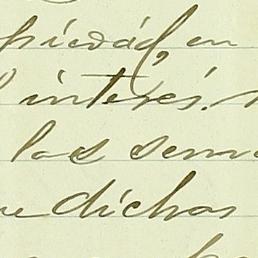 piedad, en
interés.
los sem
dichos